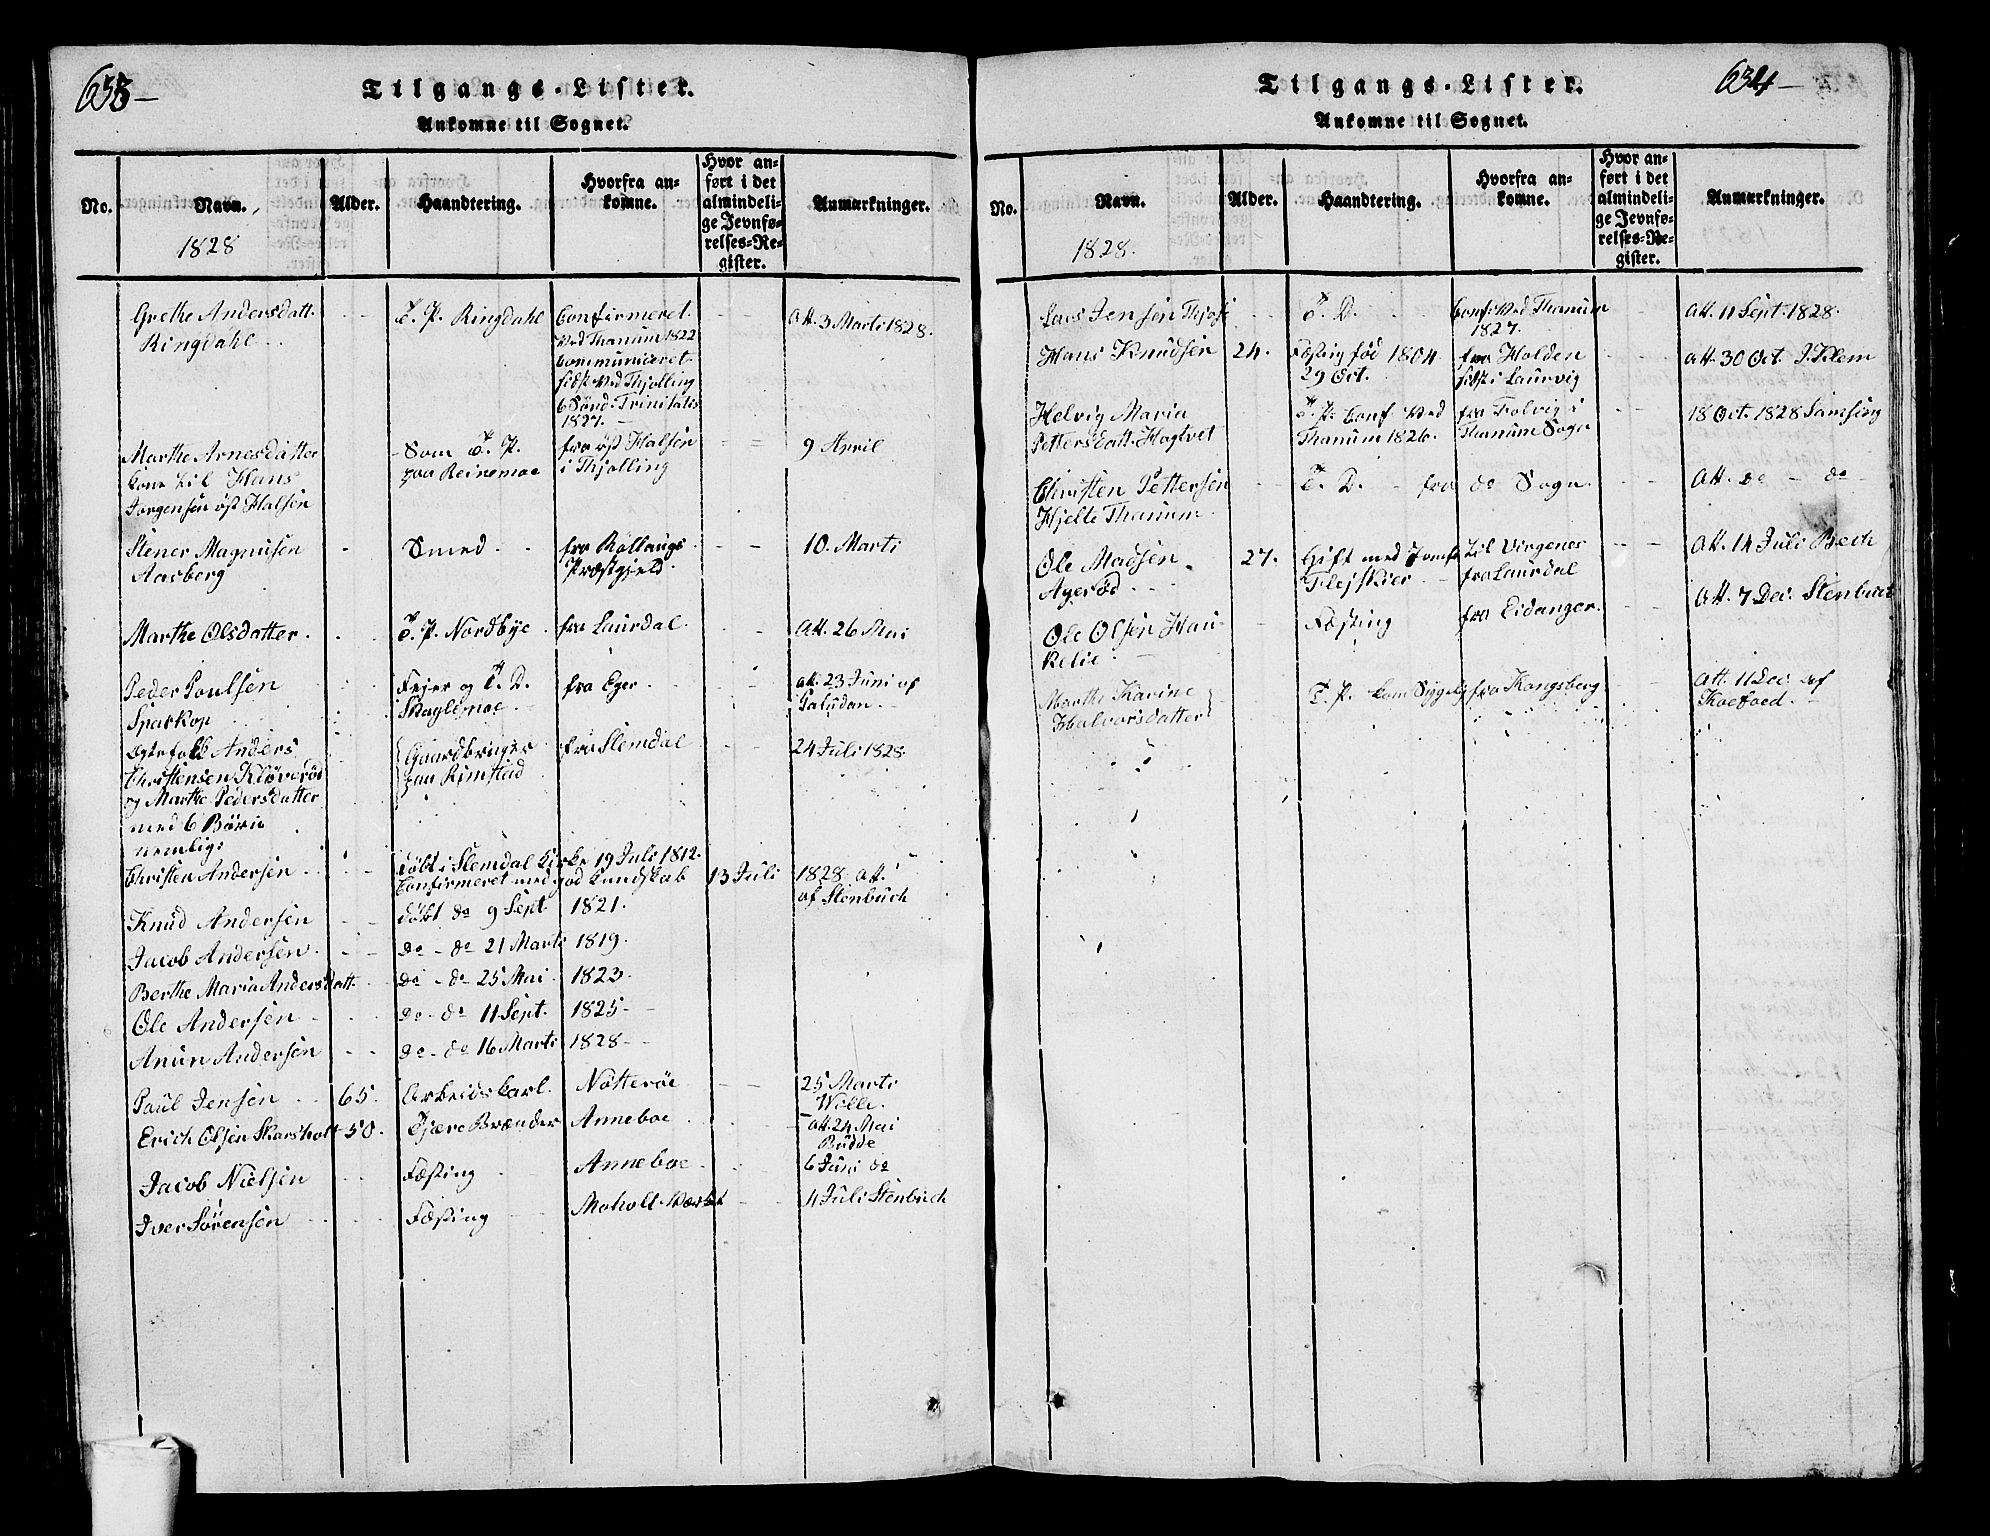 633 –
Tilgangs-Lister.
Ankomne til Sognet.
No. Navn. Alder. Haandtering. Hvorfra ankomne. Hvor anført i det almindelige Jevnførelses-Register. Anmærkninger.
1828
Grethe Andersdatt. T. P. Ringdahl Confirmeret att. 3 Marti 1828.
Ringdahl ved Thanum 1822
Communiceret
sidst ved Thjølling
6 Sønd. Trinitatis
1827.
Marthe Arnesdatter Som T. P. fra øst Halsen 9 April
kone til Hans paa Reinemoe i Thjolling
Jorgensen øst Halsen
Stener Magnusen Smed fra Rollaugs 10 Marti
Aasberg Præstgield.
Marthe Olsdatter. T. P. Nordbye fra Laurdal. Att. 26 Mai
Peder Poulsen Fejer og T. D. fra Eger att. 23 Juni af
Sparkop Skaglemoe Paludan
Anders Gaardbruger fra Slemdal 24 Juli 1828
Christensen paa Rimstad
og Marthe Pedersdatter
med 6 Børn
nemlig:
Christen Andersen døbt i Slemdal Kirke 19 Juli 1812.
Confirmeret med god Kundskab 13 Juli 1828 att.
af Stenbuch
Knud Andersen døbt do 9 Sept 1821.
Jacob Andersen do - do 21 Marti 1819.
Berthe Maria Andersdatt. do - do 25 Mai 1823
Ole Andersen do - do 11 Sept. 1825
Anun Andersen do - do 16 Marti 1828
Paul Jensen 65. Arbeidskarl. Nøtterøe 25 Marti
Wille.
Erich Olsen Skarsholt 50. Tjære Brænder Anneboe att. 24 Mai
Budde
Jacob Nielsen Fæsting Anneboe 6 Juni do
Iver Sørensen Fæsting Moholt Værket 4 Juli Stenbuch
634 –
Tilgangs-Lister.
Ankomne til Sognet.
No. Navn. Alder. Haandtering. Hvorfra ankomne. Hvor anført i det almindelige Jevnførelses-Register. Anmærkninger.
1828.
Lars Jensen T. D. Conf. ved Thanum Att. 11 Sept. 1828.
1827.
Hans Knudsen 24. Fæsting fød 1804 fra Holden att. 30 Oct. J. Klem
29 Oct. sidst i Laurvig
Helvig Maria T. P. Conf ved fra Folvig i 18 Oct. 1828 Samsing
Pettersdatt. Hogtvet Thanum 1826. Thanum Sogn
Christen Pettersen T. D. fra do Sogn. Att. do - do
Hjelte Thanum.
Ole Madsen 27. Gift med Jomf til Virgenes Att. 14 Juli Bech
Agerød Flejskier fra Laurdal
Ole Olsen Hau- Fæsting fra Eidanger. Att. 7 Dec. Stenbuch
kelie
Marthe Karine T. P. kom Sygelig fra Kongsberg Att. 11 Dec. af
Halvorsdatter Koefoed.